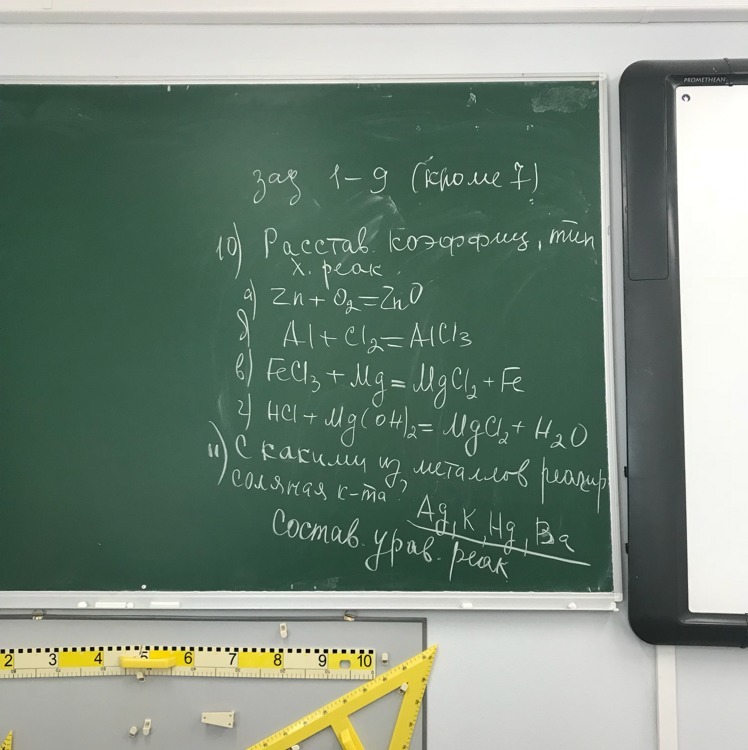 PROMETHEAN
зад 1-9 (кроме 7)
10) Расстав. коэффиц, тип
х. реак.
а) Zn + O₂ = ZnO
б) Al + Cl₂ = AlCl₃
в) FeCl₃ + Mg = MgCl₂ + Fe
г) HCl + Mg(OH)₂ = MgCl₂ + H₂O
11) С какими из металлов реагир
соляная к-та? Ag, K, Hg, Ba
Состав. урав. реак
2 3 4 5 6 7 8 9 10